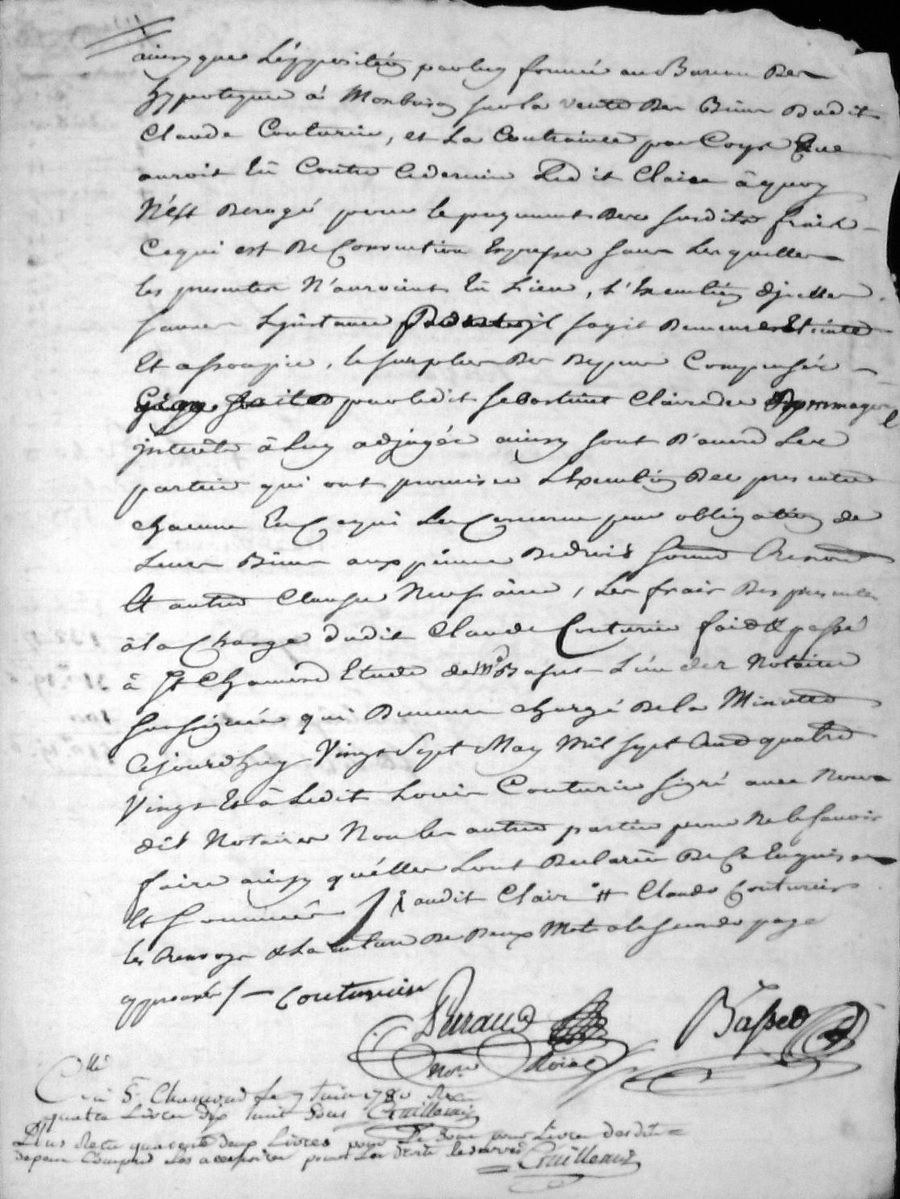 ainsy que L'opposition par luy formée au Bureau des
hypoteques à Monbrison sur la vente des Biens dudit
Claude Couturier, et La Contrainte par Corps que
auroit Eü Contre ce dernier Ledit Claire à quoy
N'est Derogé pour le payement des susdits frais
Ce qui est De Convention Expresse sans Lesquelles
les presentes N'auroient Eü Lieu, L'Execution d'jcelles
L'jnstance dont jl sagit Demeurera Eteinte
Et assoupie, le surplus Des Depens Compensée
par ledit Claire des Dommages
jnterêts à Luy adjugés ainsy sont D'accord Les
parties qui ont promis L'Execution Des presentes
chacune En Ce qui Les Concerne par obligation de
Leurs Biens aux peines De droit
Et autres Clauses Necessaires, Les frais Des presentes
à la Charge dudit Claude Couturier fait & passé
à St Chamond Etude de Me Basset L'un des Notaires
soussignés qui Demeure chargé De la Minutte
Cejourd'huy Vingt Sept May Mil sept Cent quatre
Vingt Et à Ledit Louis Couturier signé avec Nous
dit Notaires Non les autres parties pour Ne le savoir
faire ainsy qu'elles L'ont Declarée De Ce Enquises
Et sommées / audit Claire # Claude Couturier
les Renvoys & La rature De Deux Mots a la seconde page
approuvés / — couturier
Basset
nore
Clé
à St Chamond Le 7 Juin 1780 Reçu
quatre Livres dix huit sous
Plus Reçu quarante deux Livres pour
depens Compris Les accessoires pour Les droits